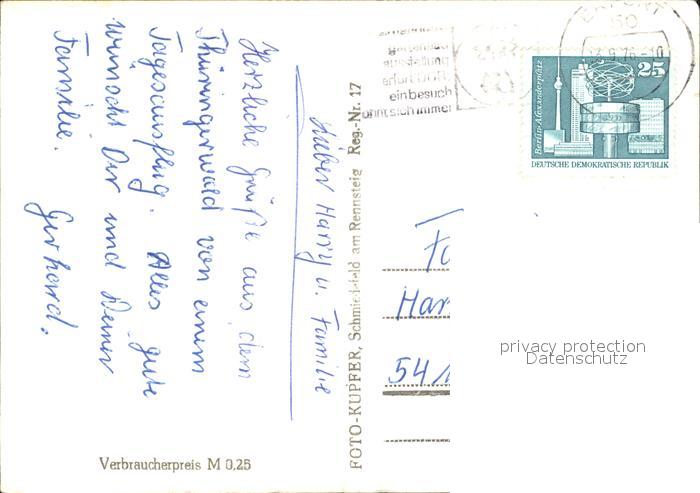 Lieber Harry u. Familie
Herzliche Grüße aus dem
Thüringerwald von einem
Tagesausflug. Alles gute
wünscht Dir und Deiner
Familie.
Gerhard.
Verbraucherpreis M 0,25
FOTO-KUPFER, Schmiedefeld am Rennsteig Reg.-Nr. 17
ausstellung
erfurt DDR
ein besuch
lohnt sich immer
ERFURT
50
9.76-10
25
Berlin-Alexanderplatz
DEUTSCHE DEMOKRATISCHE REPUBLIK
Fa
Har
54
privacy protection
Datenschutz